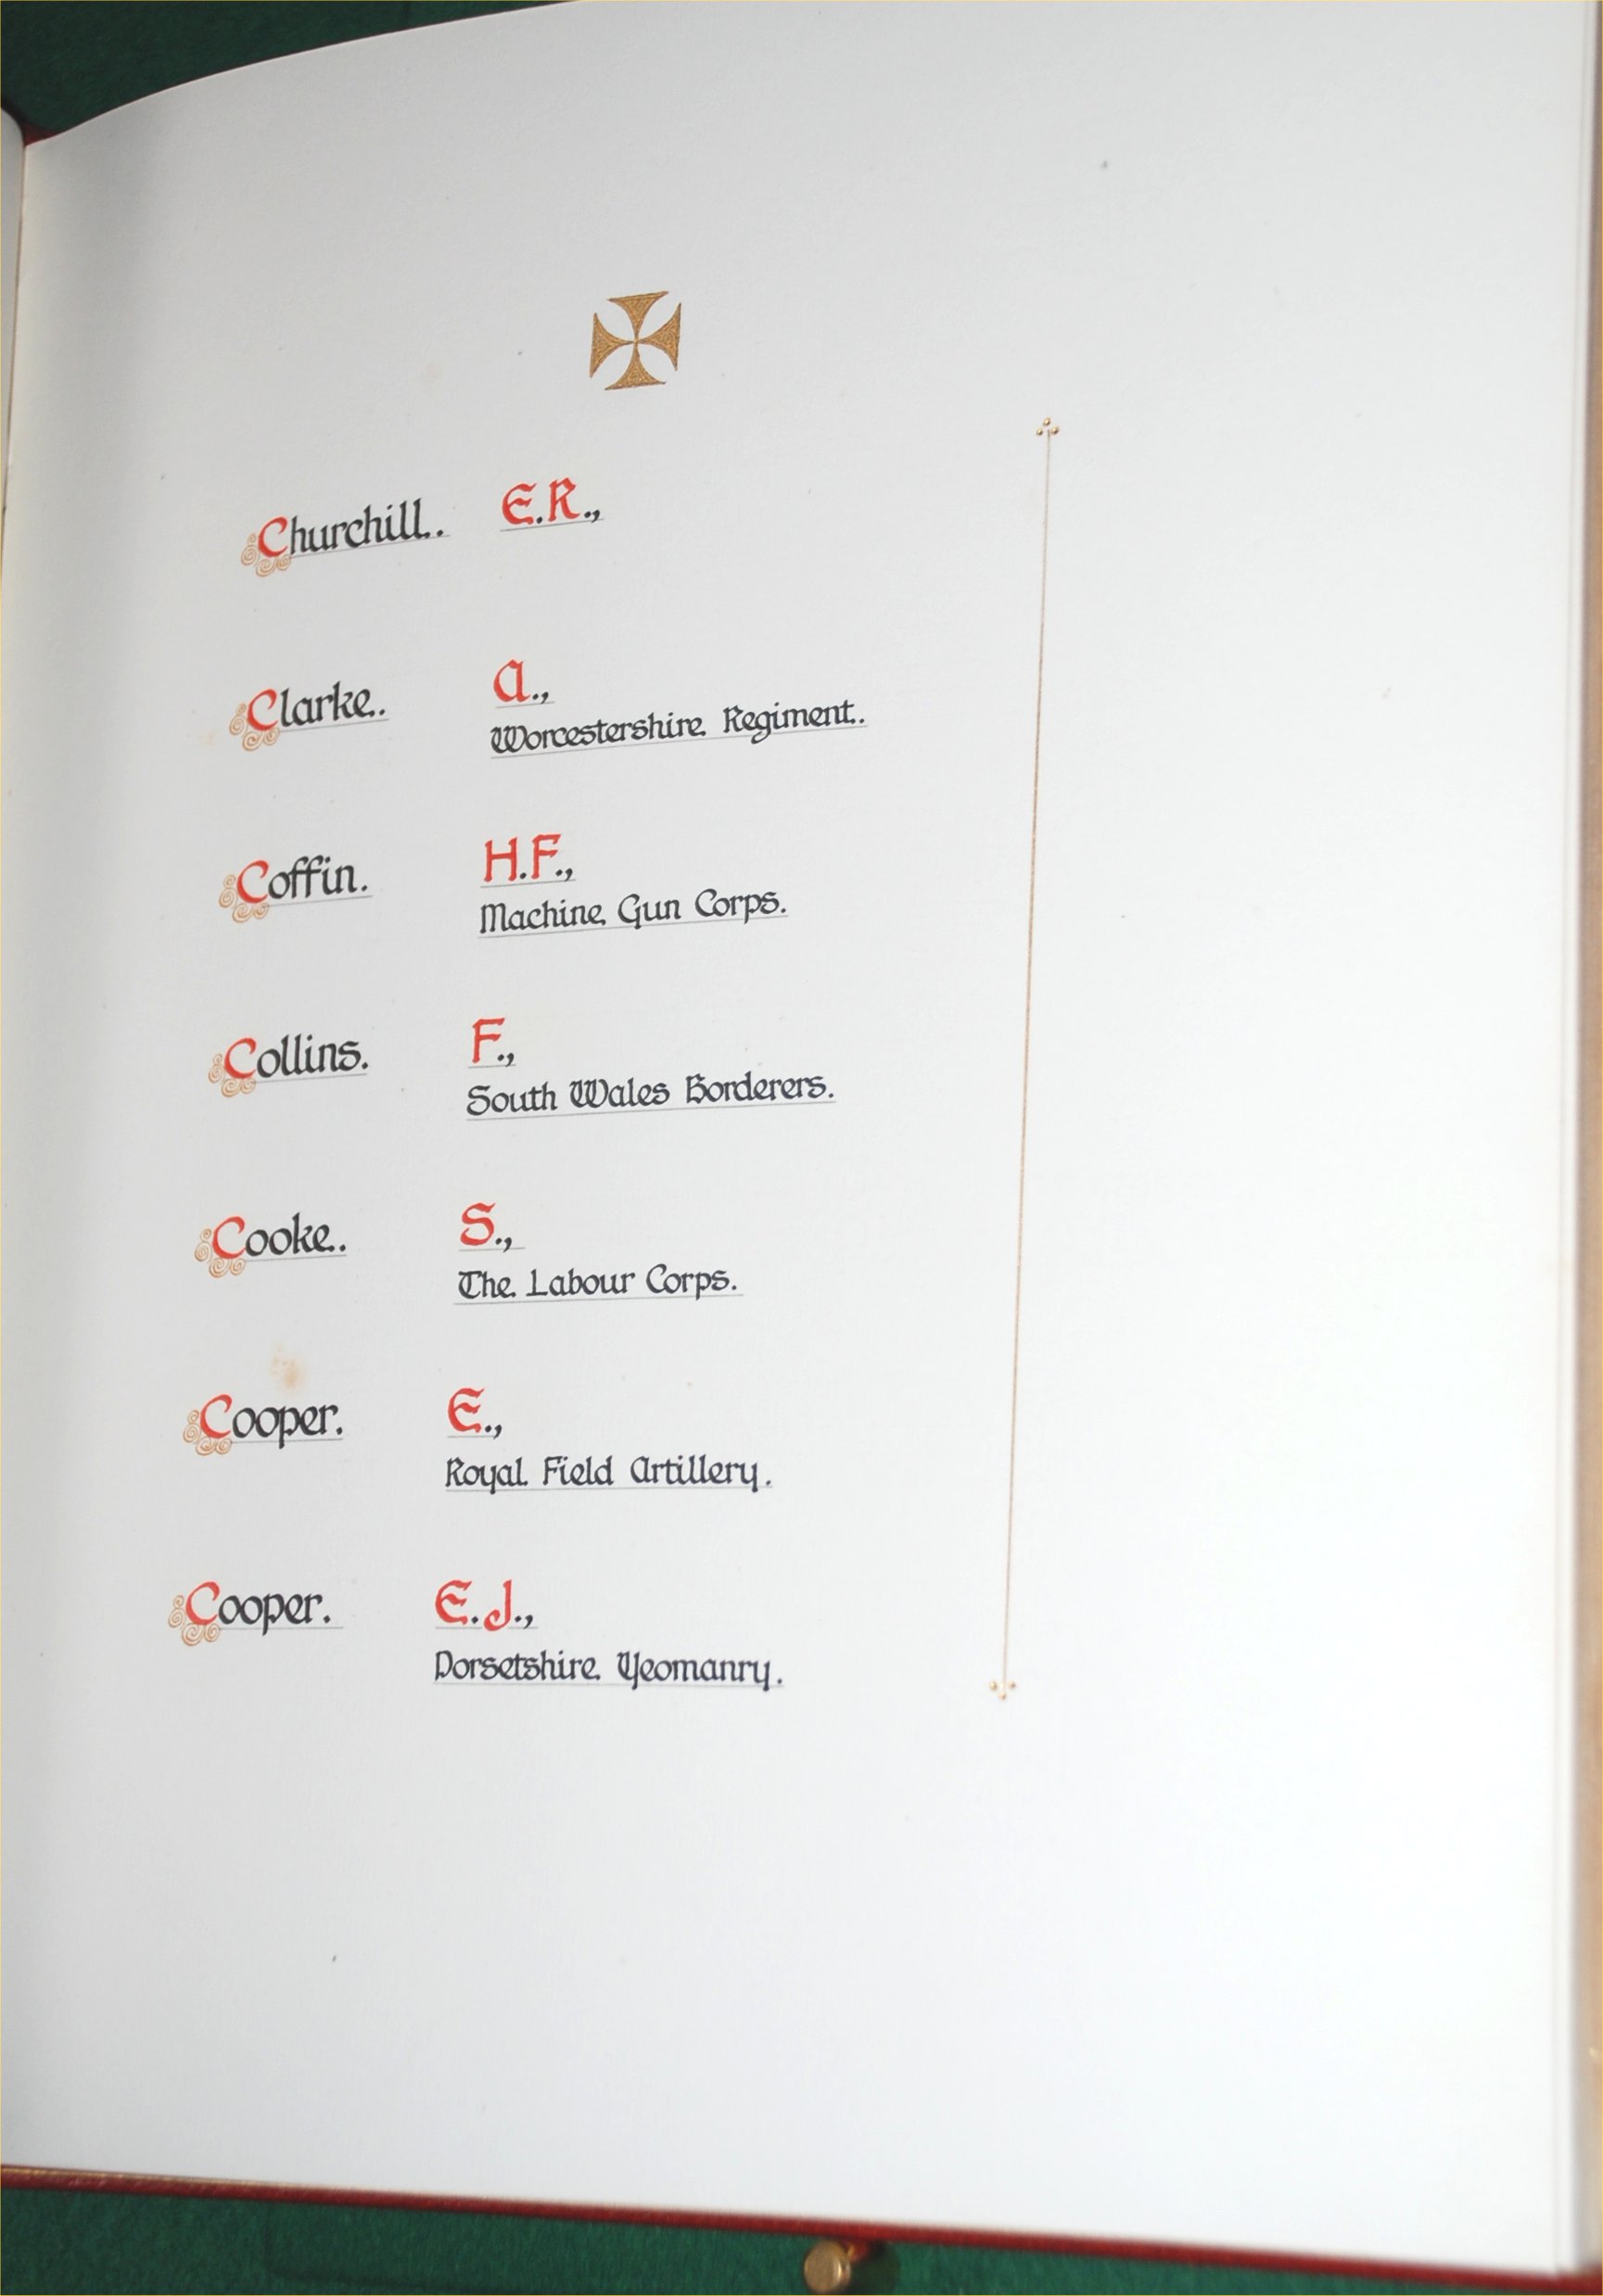 Churchill. E.R.,
Clarke. A.,
Worcestershire Regiment.
Coffin. H.F.,
Machine Gun Corps.
Collins. F.,
South Wales Borderers.
Cooke. S.,
The Labour Corps.
Cooper. E.,
Royal Field Artillery.
Cooper. E.J.,
Dorsetshire Yeomanry.